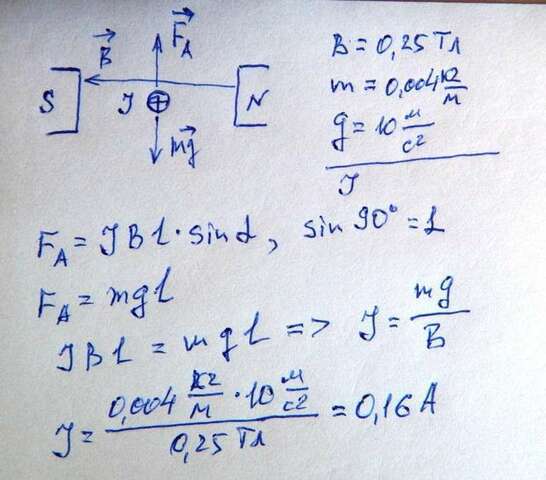 B⃗ F⃗_A
S J ⊕ N
mg⃗
B = 0,25 Тл
m = 0,004 кг/м
g = 10 м/с²
J
F_A = JBl · sin α, sin 90° = 1
F_A = mgl
JBl = mgl => J = mg/B
J = (0,004 кг/м · 10 м/с²)/(0,25 Тл) = 0,16 A